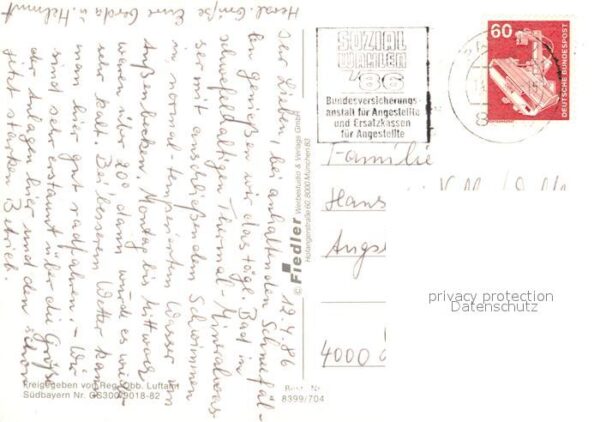 19.4.86
Ihr Lieben, bei anhaltenden Schneefäl-
len genießen wir das tägl. Bad im
schwefelhaltigen Thermal-Mineralwas-
ser mit anschließendem Schwimmen
in normal-temperiertem Wasser im
Außenbecken. Montag bis Mittwoch
waren nur 20° dann wurde es wieder
sehr kalt. Bei besserem Wetter kann
man hier gut radfahren. - Wir
sind sehr erstaunt über die Größe
der Anlage hier und den schon
jetzt starken Betrieb.
Herzl. Grüße Eure Gerda u. Helmut
© Fiedler Werbestudio & Verlags GmbH
Hofangerstraße 60, 8000 München 83
SOZIAL
WAHLEN
'86
Bundesversicherungs-
anstalt für Angestellte
und Ersatzkassen
für Angestellte
60
DEUTSCHE BUNDESPOST
Familie
Hans
4000
privacy protection
Datenschutz
Freigegeben von Reg. Obb. Luftamt
Südbayern Nr. GS300/9018-82
Best. Nr.
8399/704